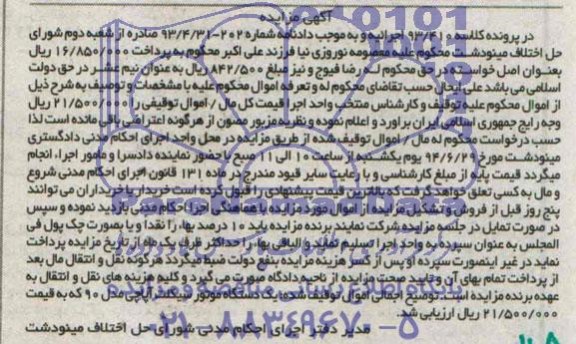 آگهی مزایده
در پرونده کلاسه ۹۳/۴۱۰ اجرائیه و به موجب دادنامه شماره ۲۰۲-۹۳/۴/۳۱ صادره از شعبه دوم شورای
حل اختلاف مینودشت محکوم علیه معصومه نوروزی نیا فرزند علی اکبر محکوم به پرداخت ۱۶/۸۵۰/۰۰۰ ریال
بعنوان اصل خواسته در حق محکوم له رضا فیوج و نیز مبلغ ۸۴۲/۵۰۰ ریال به عنوان نیم عشر در حق دولت
اسلامی می باشد علی ایحال حسب تقاضای محکوم له و تعرفه اموال محکوم علیه با مشخصات و توصیف به شرح ذیل
از اموال محکوم علیه توقیف و کارشناس منتخب واحد اجرا قیمت کل مال / اموال توقیفی را ۲۱/۵۰۰/۰۰۰ ریال
وجه رایج جمهوری اسلامی ایران برآورد و اعلام نموده و نظریه مزبور مصون از هرگونه اعتراضی باقی مانده است لذا
حسب درخواست محکوم له مال / اموال توقیف شده از طریق مزایده در محل واحد اجرای احکام مدنی دادگستری
مینودشت مورخ ۹۴/۶/۲۹ یوم یکشنبه از ساعت ۱۰ الی ۱۱ صبح با حضور نماینده دادسرا و مامور اجرا، انجام
میگردد قیمت پایه از مبلغ کارشناسی و با رعایت سایر قیود مندرج در ماده ۱۳۱ قانون اجرای احکام مدنی شروع
و مال به کسی تعلق خواهد گرفت که بالاترین قیمت پیشنهادی را قبول کرده است خریدار یا خریداران می توانند
پنج روز قبل از فروش و تشکیل مزایده از اموال مورد مزایده با هماهنگی اجرا احکام مدنی بازدید نموده و سپس
در صورت تمایل در جلسه مزایده شرکت نمایند برنده مزایده باید ۱۰ درصد بها را نقدا و یا بصورت چک پول فی
المجلس به عنوان سپرده به واحد اجرا تسلیم نماید و الباقی بها را حداکثر ظرف یک ماه از تاریخ مزایده پرداخت
نماید در غیر اینصورت سپرده او پس از کسر هزینه مزایده بنفع دولت ضبط میگردد هرگونه نقل و انتقال مال بعد
از پرداخت تمام بهای آن و تایید صحت مزایده از ناحیه دادگاه صورت می گیرد و کلیه هزینه های نقل و انتقال به
عهده برنده مزایده است توضیح اجمالی اموال توقیف شده: یک دستگاه موتور سیکلت آپاچی مدل ۹۰ که به قیمت
۲۱/۵۰۰/۰۰۰ ریال ارزیابی شد.
مدیر دفتر اجرای احکام مدنی شورای حل اختلاف مینودشت
۰۲۱-۸۸۳۴۹۶۷۰-۵